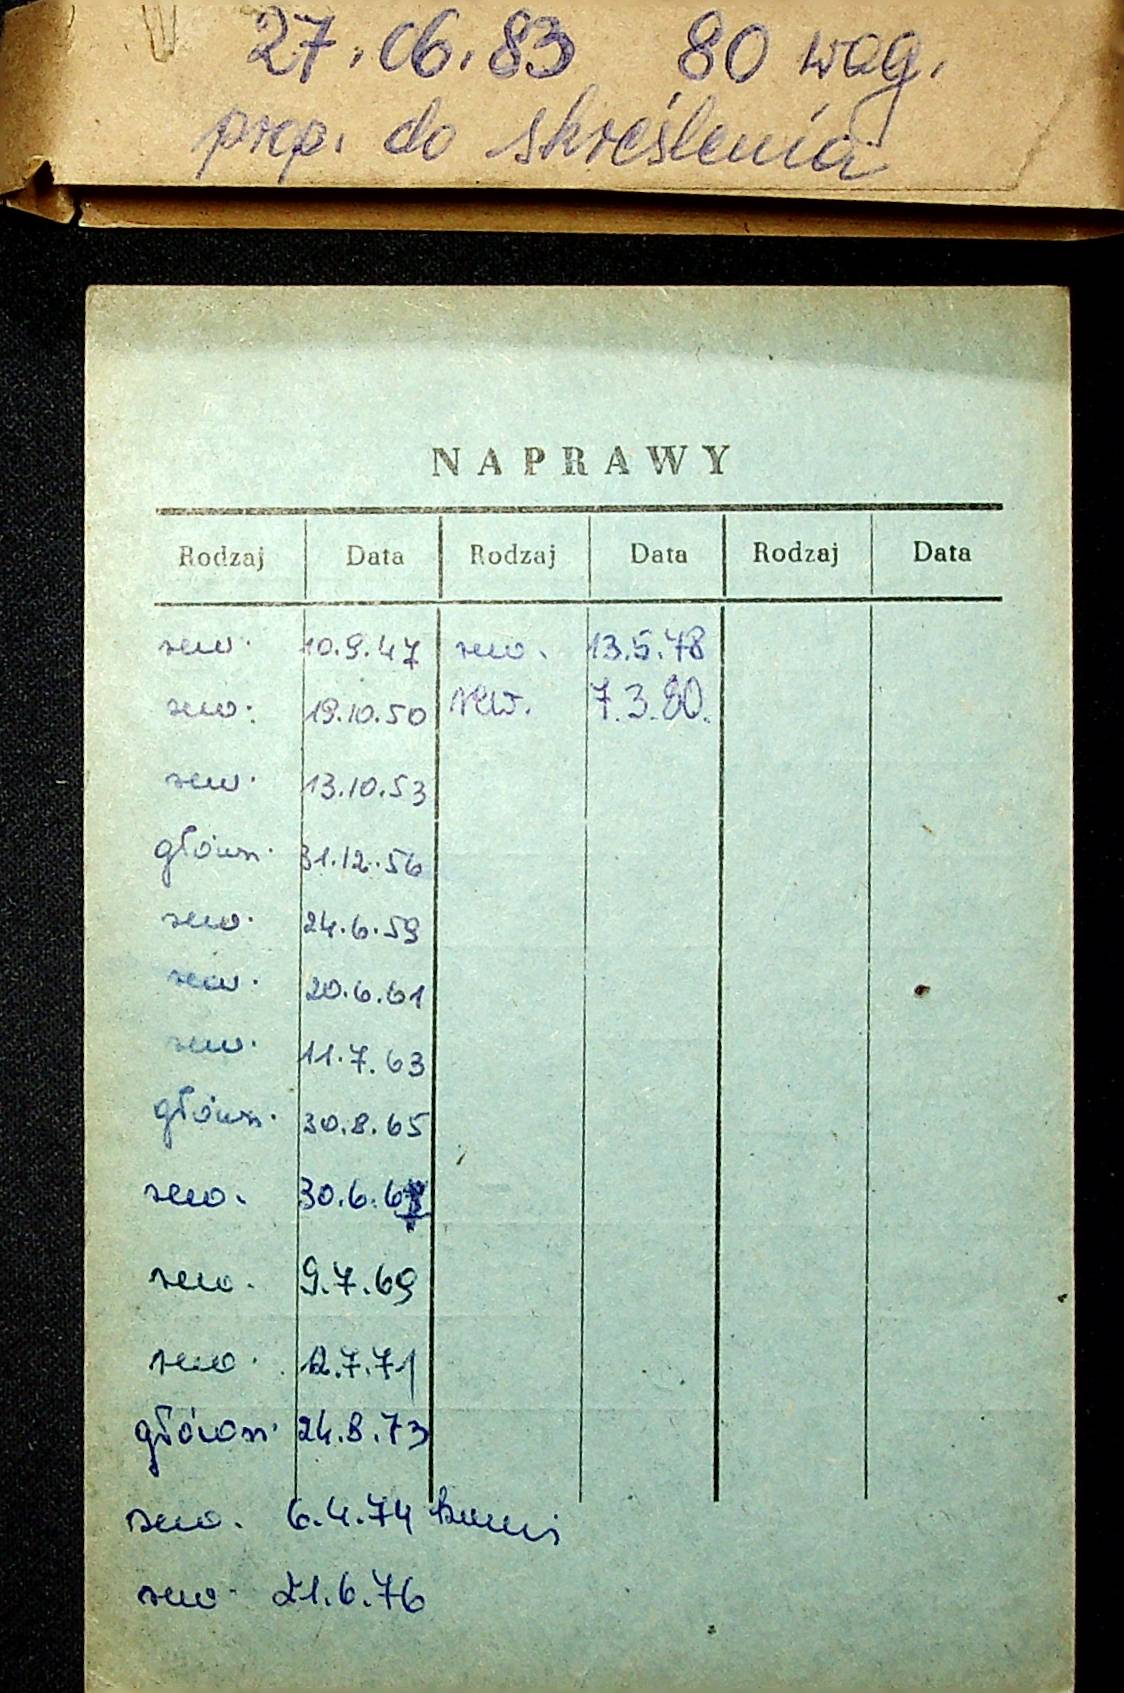 27.06.83 80 wag.
prop. do skreślenia
NAPRAWY
Rodzaj Data Rodzaj Data Rodzaj Data
rew. 10.9.47 rew. 13.5.78
rew. 19.10.50 rew. 7.3.80.
rew. 13.10.53
główn. 31.12.56
rew. 24.6.59
rew. 20.6.61
rew. 11.7.63
główn. 30.8.65
rew. 30.6.67
rew. 9.7.69
rew. 12.7.71
główn. 24.8.73
rew. 6.4.74
rew. 21.6.76